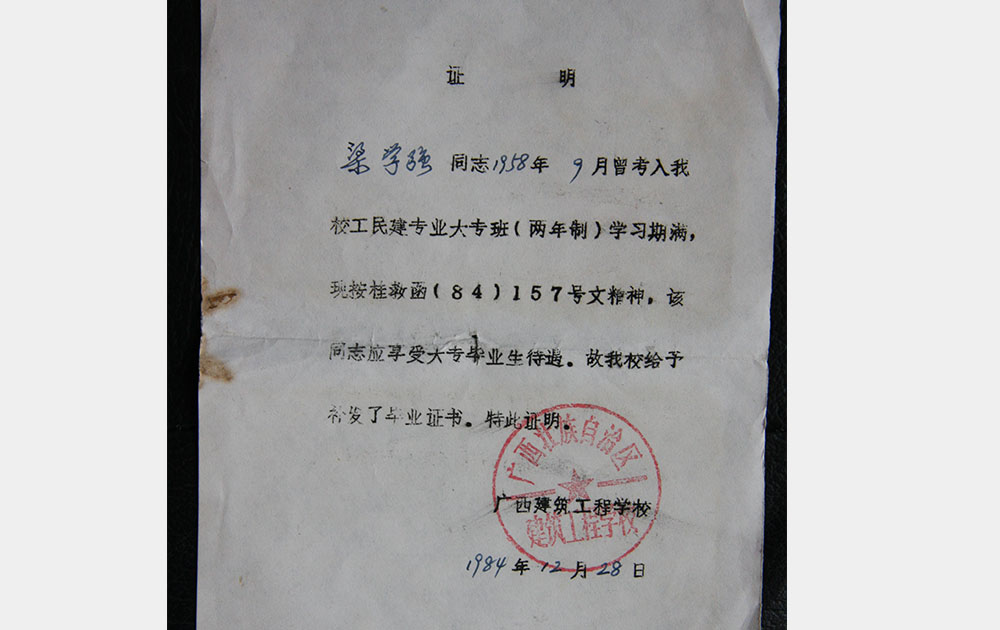 证 明
梁学强 同志1958年 9月曾考入我
校工民建专业大专班(两年制)学习期满,
现按桂教函(84)157号文精神,该
同志应享受大专毕业生待遇。故我校给予
补发了毕业证书。特此证明。
广西壮族自治区
广西建筑工程学校
建筑工程学校
1984年12月28日